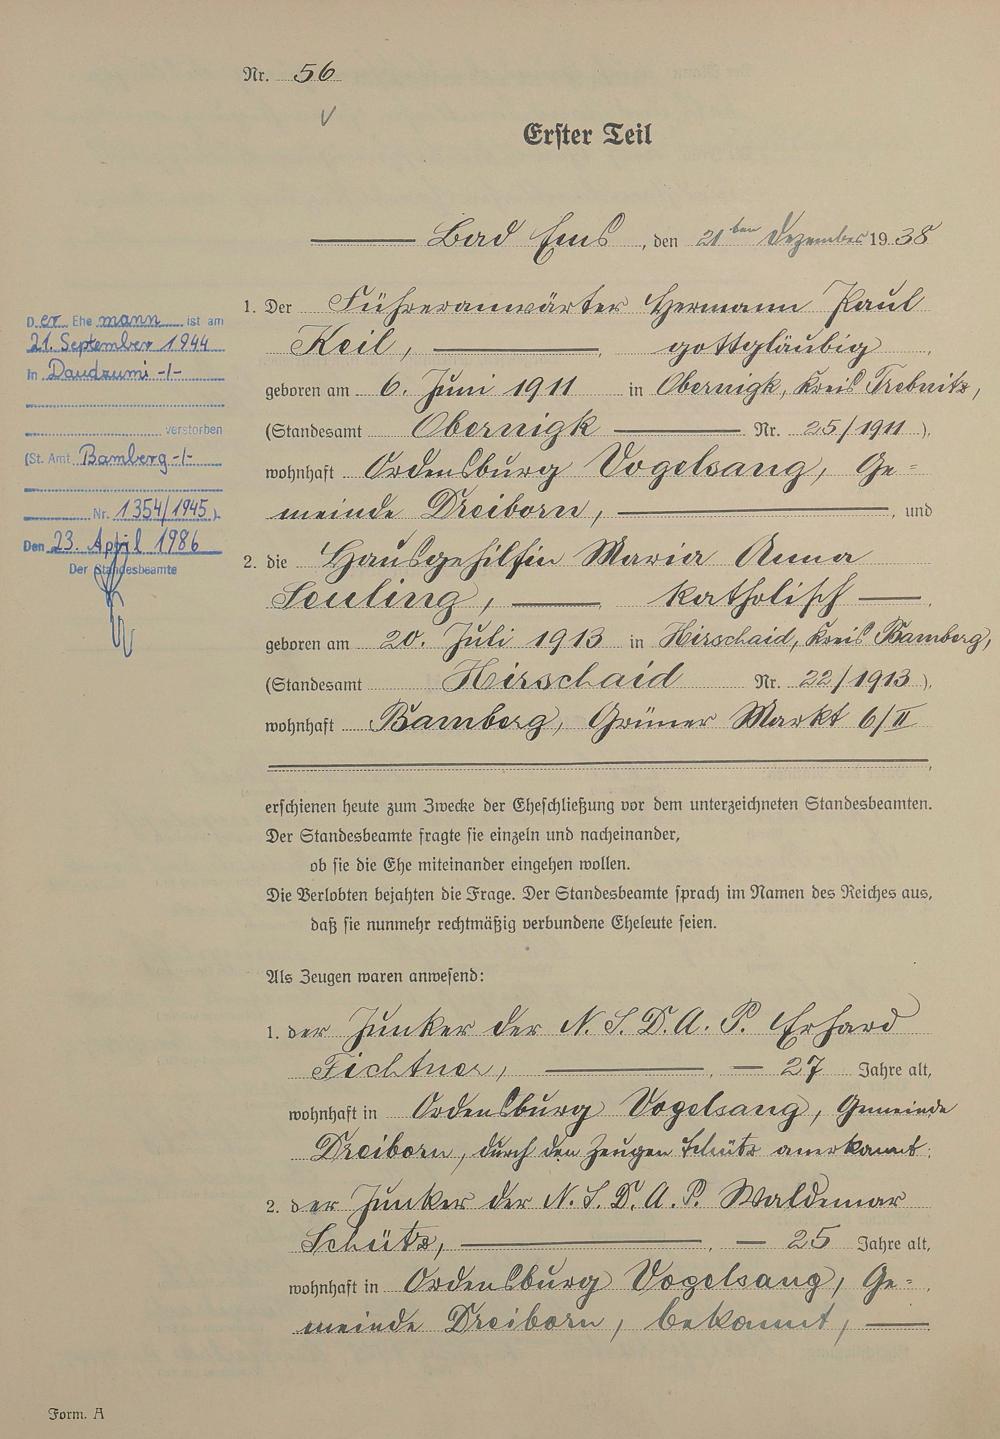 Nr. 56
Erster Teil
Bad Ems, den 21ten Dezember 1938
1. Der Führeranwärter Hermann Paul
Keil, gottgläubig,
geboren am 6. Juni 1911 in Obernigk, Kreis Trebnitz,
(Standesamt Obernigk Nr. 25/1911),
wohnhaft Ordensburg Vogelsang, Ge=
meinde Dreiborn, und
2. die Hausgehilfin Maria Anna
Leuling, katholisch,
geboren am 20. Juli 1913 in Hirschaid, Kreis Bamberg,
(Standesamt Hirschaid Nr. 22/1913),
wohnhaft Bamberg, Grüner Markt 6/II
,
erschienen heute zum Zwecke der Eheschließung vor dem unterzeichneten Standesbeamten.
Der Standesbeamte fragte sie einzeln und nacheinander,
ob sie die Ehe miteinander eingehen wollen.
Die Verlobten bejahten die Frage. Der Standesbeamte sprach im Namen des Reiches aus,
daß sie nunmehr rechtmäßig verbundene Eheleute seien.
Als Zeugen waren anwesend:
1. der Junker der N.S.D.A.P. Erhard
Fichtner, 27 Jahre alt,
wohnhaft in Ordensburg Vogelsang, Gemeinde
Dreiborn, durch den Zeugen Schütz anerkannt;
2. der Junker der N.S.D.A.P. Waldemar
Schütz, 25 Jahre alt,
wohnhaft in Ordensburg Vogelsang, Ge=
meinde Dreiborn, bekannt,
Form. A
Der Ehemann ist am
21. September 1944
in Daudzumi -/-
verstorben
(St. Amt Bamberg -/-
Nr. 1354/1945)
Den 23. April 1986
Der Standesbeamte